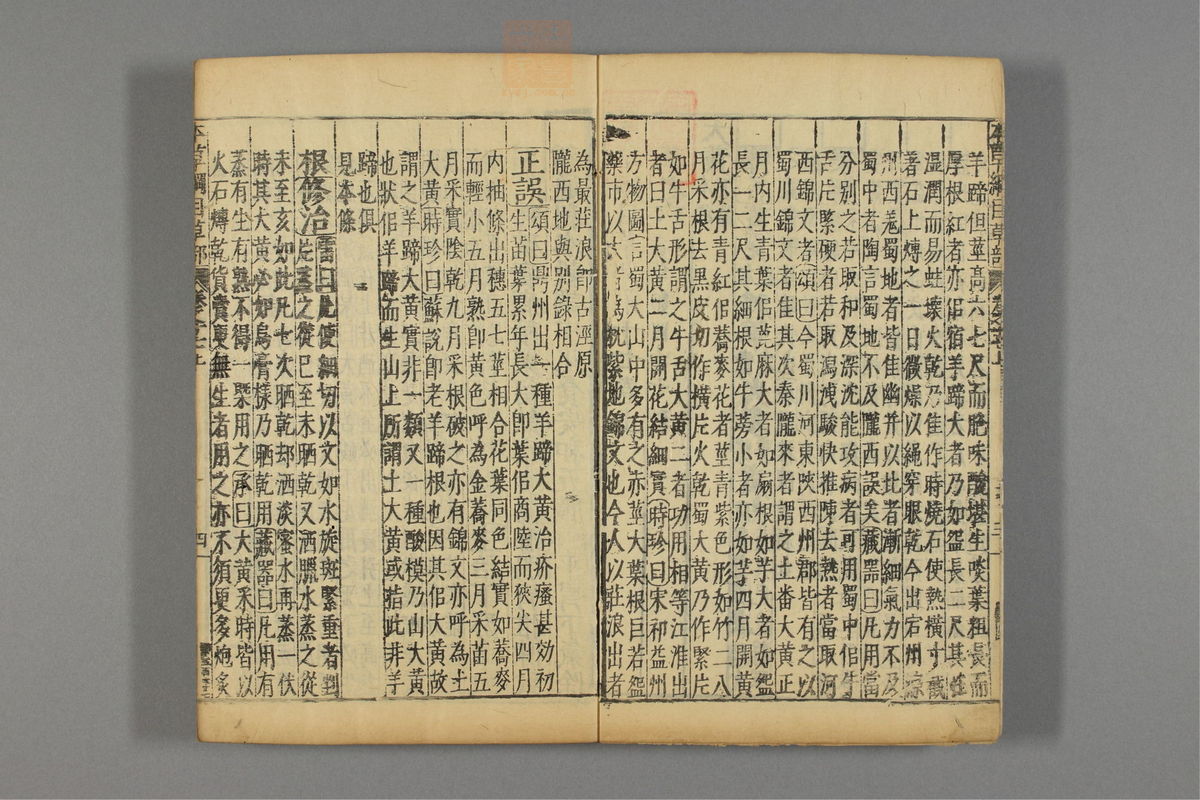 本草綱目草部
羊蹄但莖高六七尺而脆味酸堪生啖葉粗長而
厚根紅者亦佀宿羊蹄大者乃如盌長二尺其性
溫潤而易蛀壞火乾乃佳作時燒石使熱橫寸截
著石上煿之一日微燥以繩穿眼乾今出宕州涼
州西羌蜀地者皆佳幽并以北者漸細氣力不及
蜀中者陶言蜀地不及隴西誤矣藏器曰凡用當
分別之若取和及深沈能攻病者可用蜀中佀牛
舌片緊硬者若取瀉洩駿快推陳去熱者當取河
西錦文者頌曰今蜀川河東陝西州郡皆有之以
蜀川錦文者佳其次秦隴來者謂之土番大黃正
月內生青葉佀蓖麻大者如扇根如芋大者如盌
長一二尺其細根如牛蒡小者亦如芋四月開黃
花亦有青紅佀蕎麥花者莖青紫色形如竹二八
月采根去黑皮切作橫片火乾蜀大黃乃作緊片
如牛舌形謂之牛舌大黃二者功用相等江淮出
者曰土大黃二月開花結細實時珍曰宋祁益州
方物圖言蜀大山中多有之赤莖大葉根巨若盌
藥市以大者為枕紫地錦文也今人以莊浪出者
為最莊浪即古涇原
隴西地與別錄相合
正誤頌曰鼎州出一種羊蹄大黃治疥瘙甚効初
生苗葉累年長大即葉佀商陸而狹尖四月
內抽條出穗五七莖相合花葉同色結實如蕎麥
而輕小五月熟即黃色呼為金蕎麥三月采苗五
月采實陰乾九月采根破之亦有錦文亦呼為土
大黃時珍曰蘇說即老羊蹄根也因其佀大黃故
謂之羊蹄大黃實非一類又一種酸模乃山大黃
也狀佀羊蹄而生山上所謂土大黃或指此非羊
蹄也俱
見本條
根修治雷曰凡使細切以文如水旋斑緊重者剉
片蒸之從巳至未晒乾又洒臘水蒸之從
未至亥如此凡七次晒乾却洒淡蜜水再蒸一伏
時其大黃必如烏膏樣乃晒乾用藏器曰凡用有
蒸有生有熟不得一槩用之承曰大黃采時皆以
火石煿乾貨賣更無生者用之亦不須更多炮炙
本草綱目草部
四